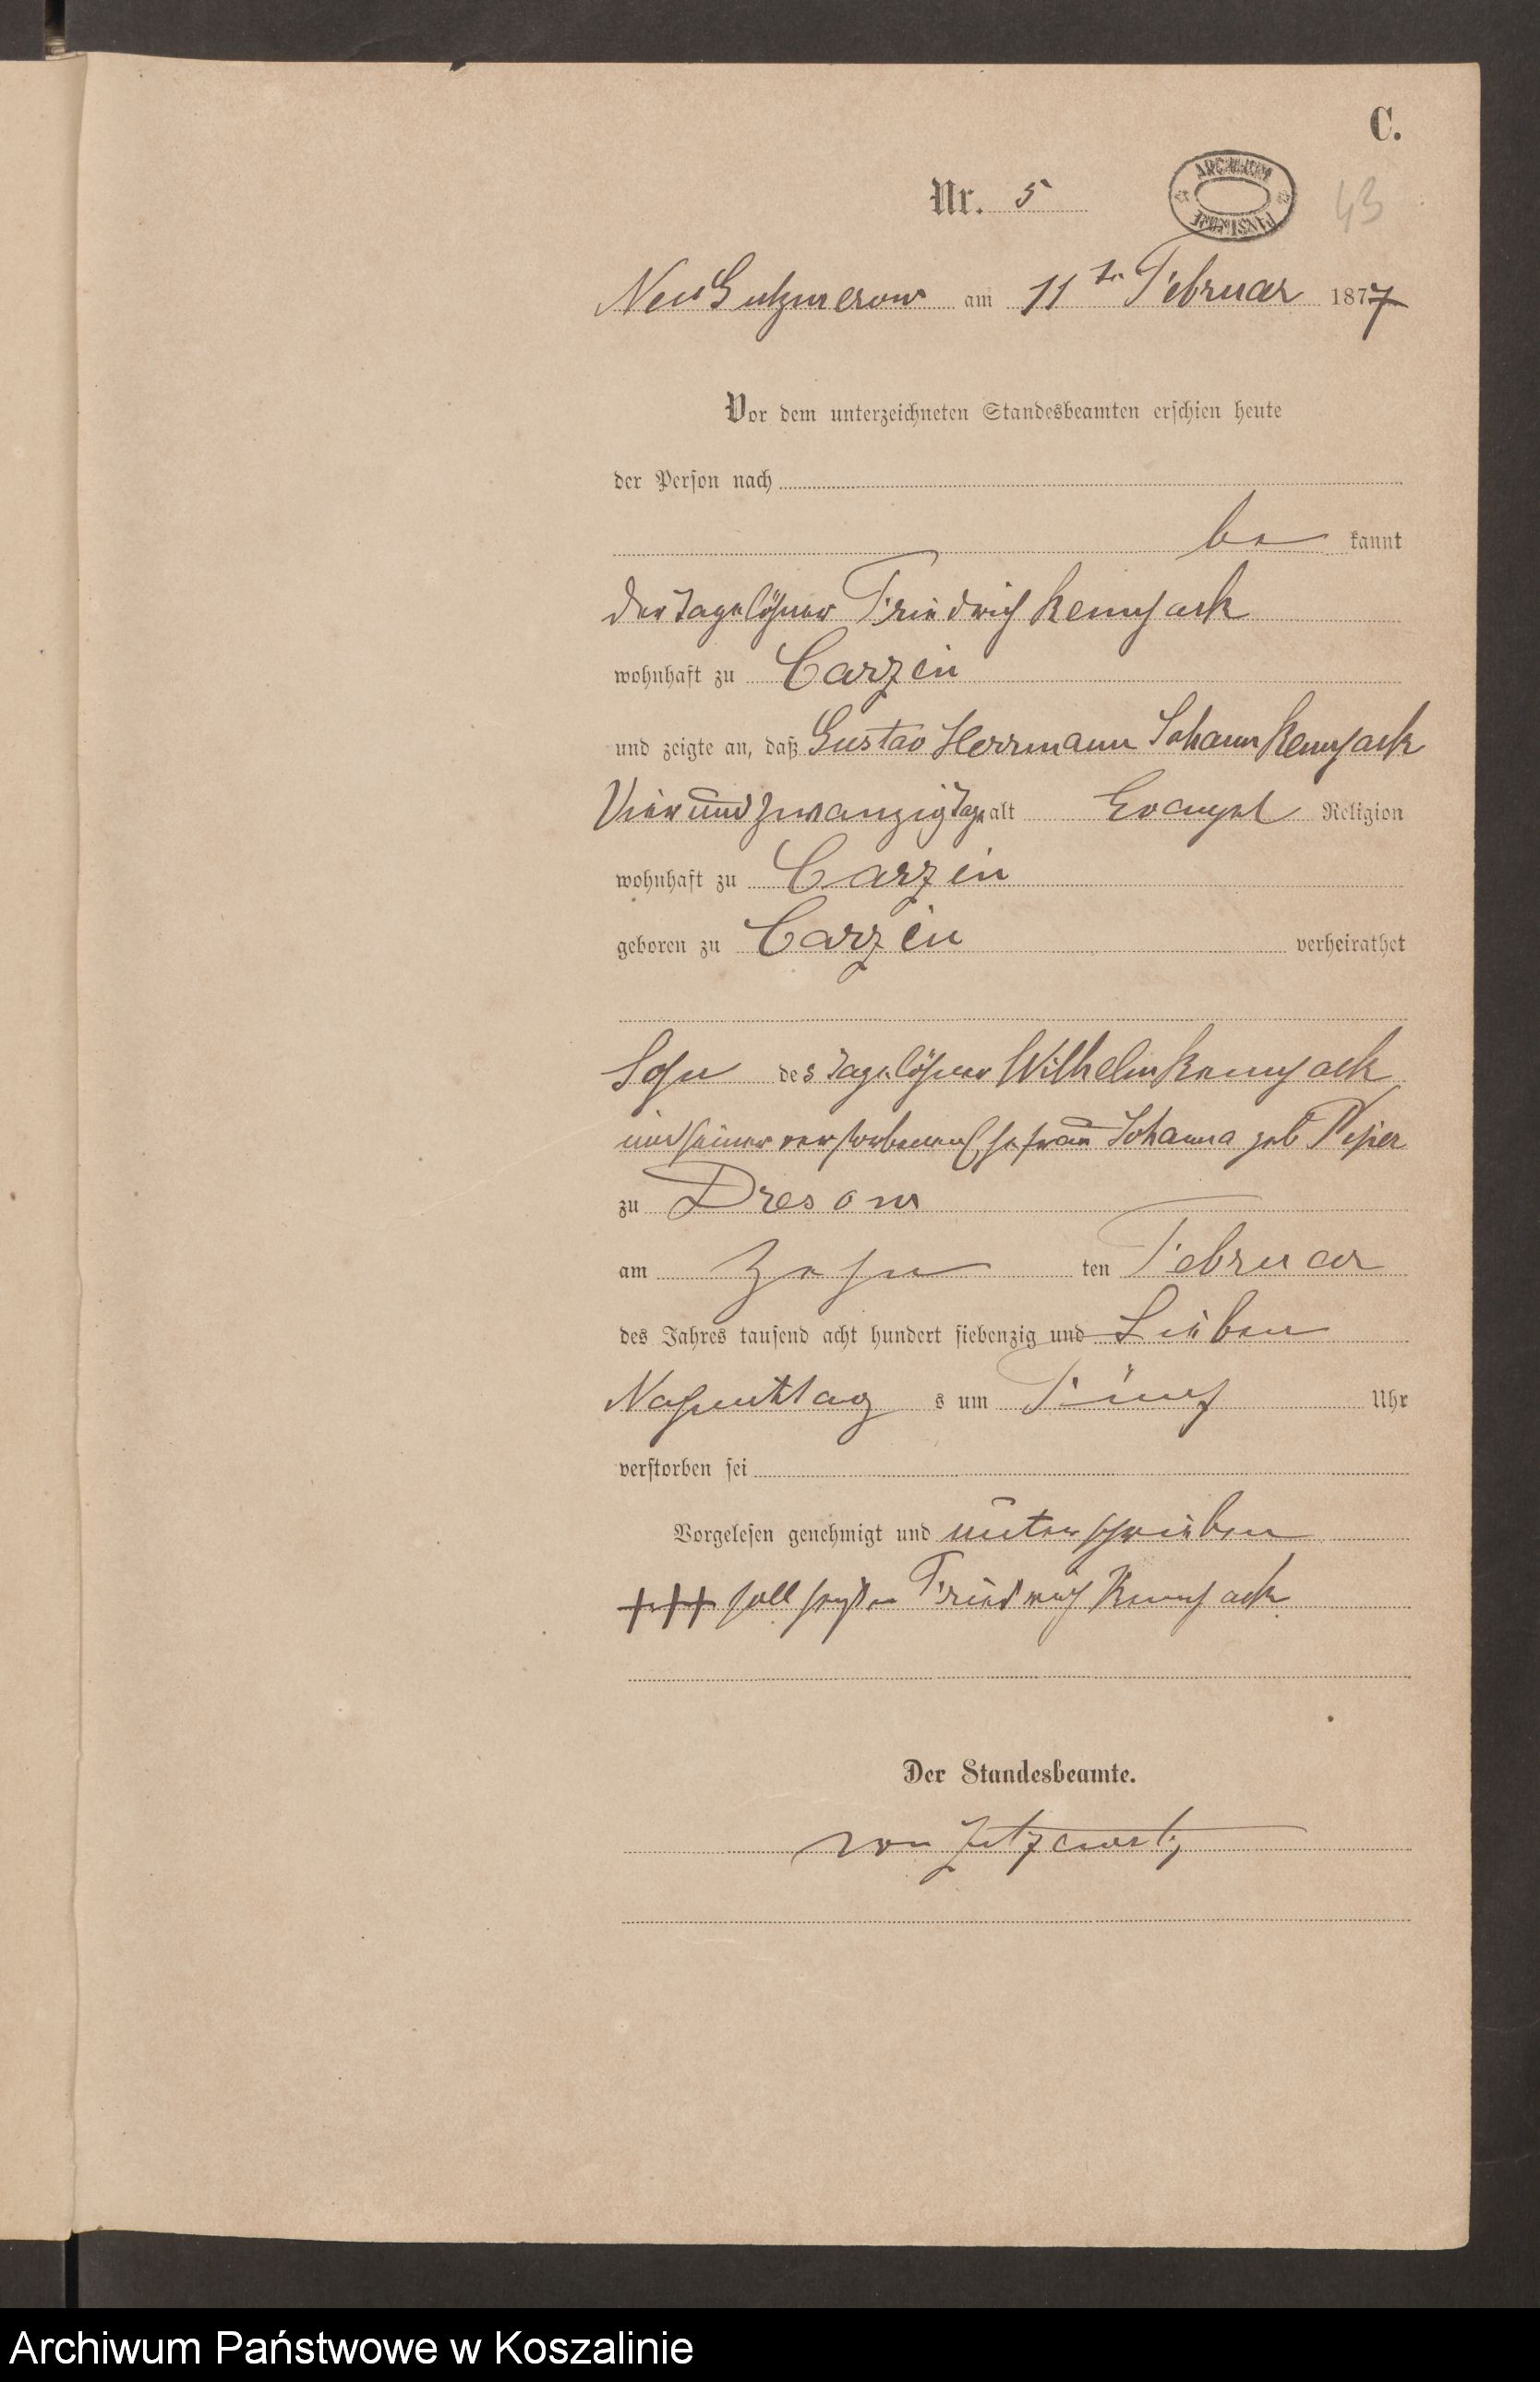 C.
Nr. 5
ARCHIWUM PAŃSTWOWE
43
Neu Gutzmerow am 11ten Februar 1877
Vor dem unterzeichneten Standesbeamten erschien heute
der Person nach
be kannt
der Tagelöhner Friedrich
wohnhaft zu Carzin
und zeigte an, daß Gustav Herrmann Johann
Vier und zwanzig Tage alt Evangel Religion
wohnhaft zu Carzin
geboren zu Carzin verheirathet
Sohn des Tagelöhner Wilhelm
und seiner verstorbenen Ehefrau Johanna geb Peper
zu Dresow
am Zehn ten Februar
des Jahres tausend acht hundert siebenzig und Sieben
Nachmittag s um Fünf Uhr
verstorben sei
Vorgelesen genehmigt und unterschrieben
+++ soll heißen Friedrich
Der Standesbeamte.
von Zitzewitz
Archiwum Państwowe w Koszalinie